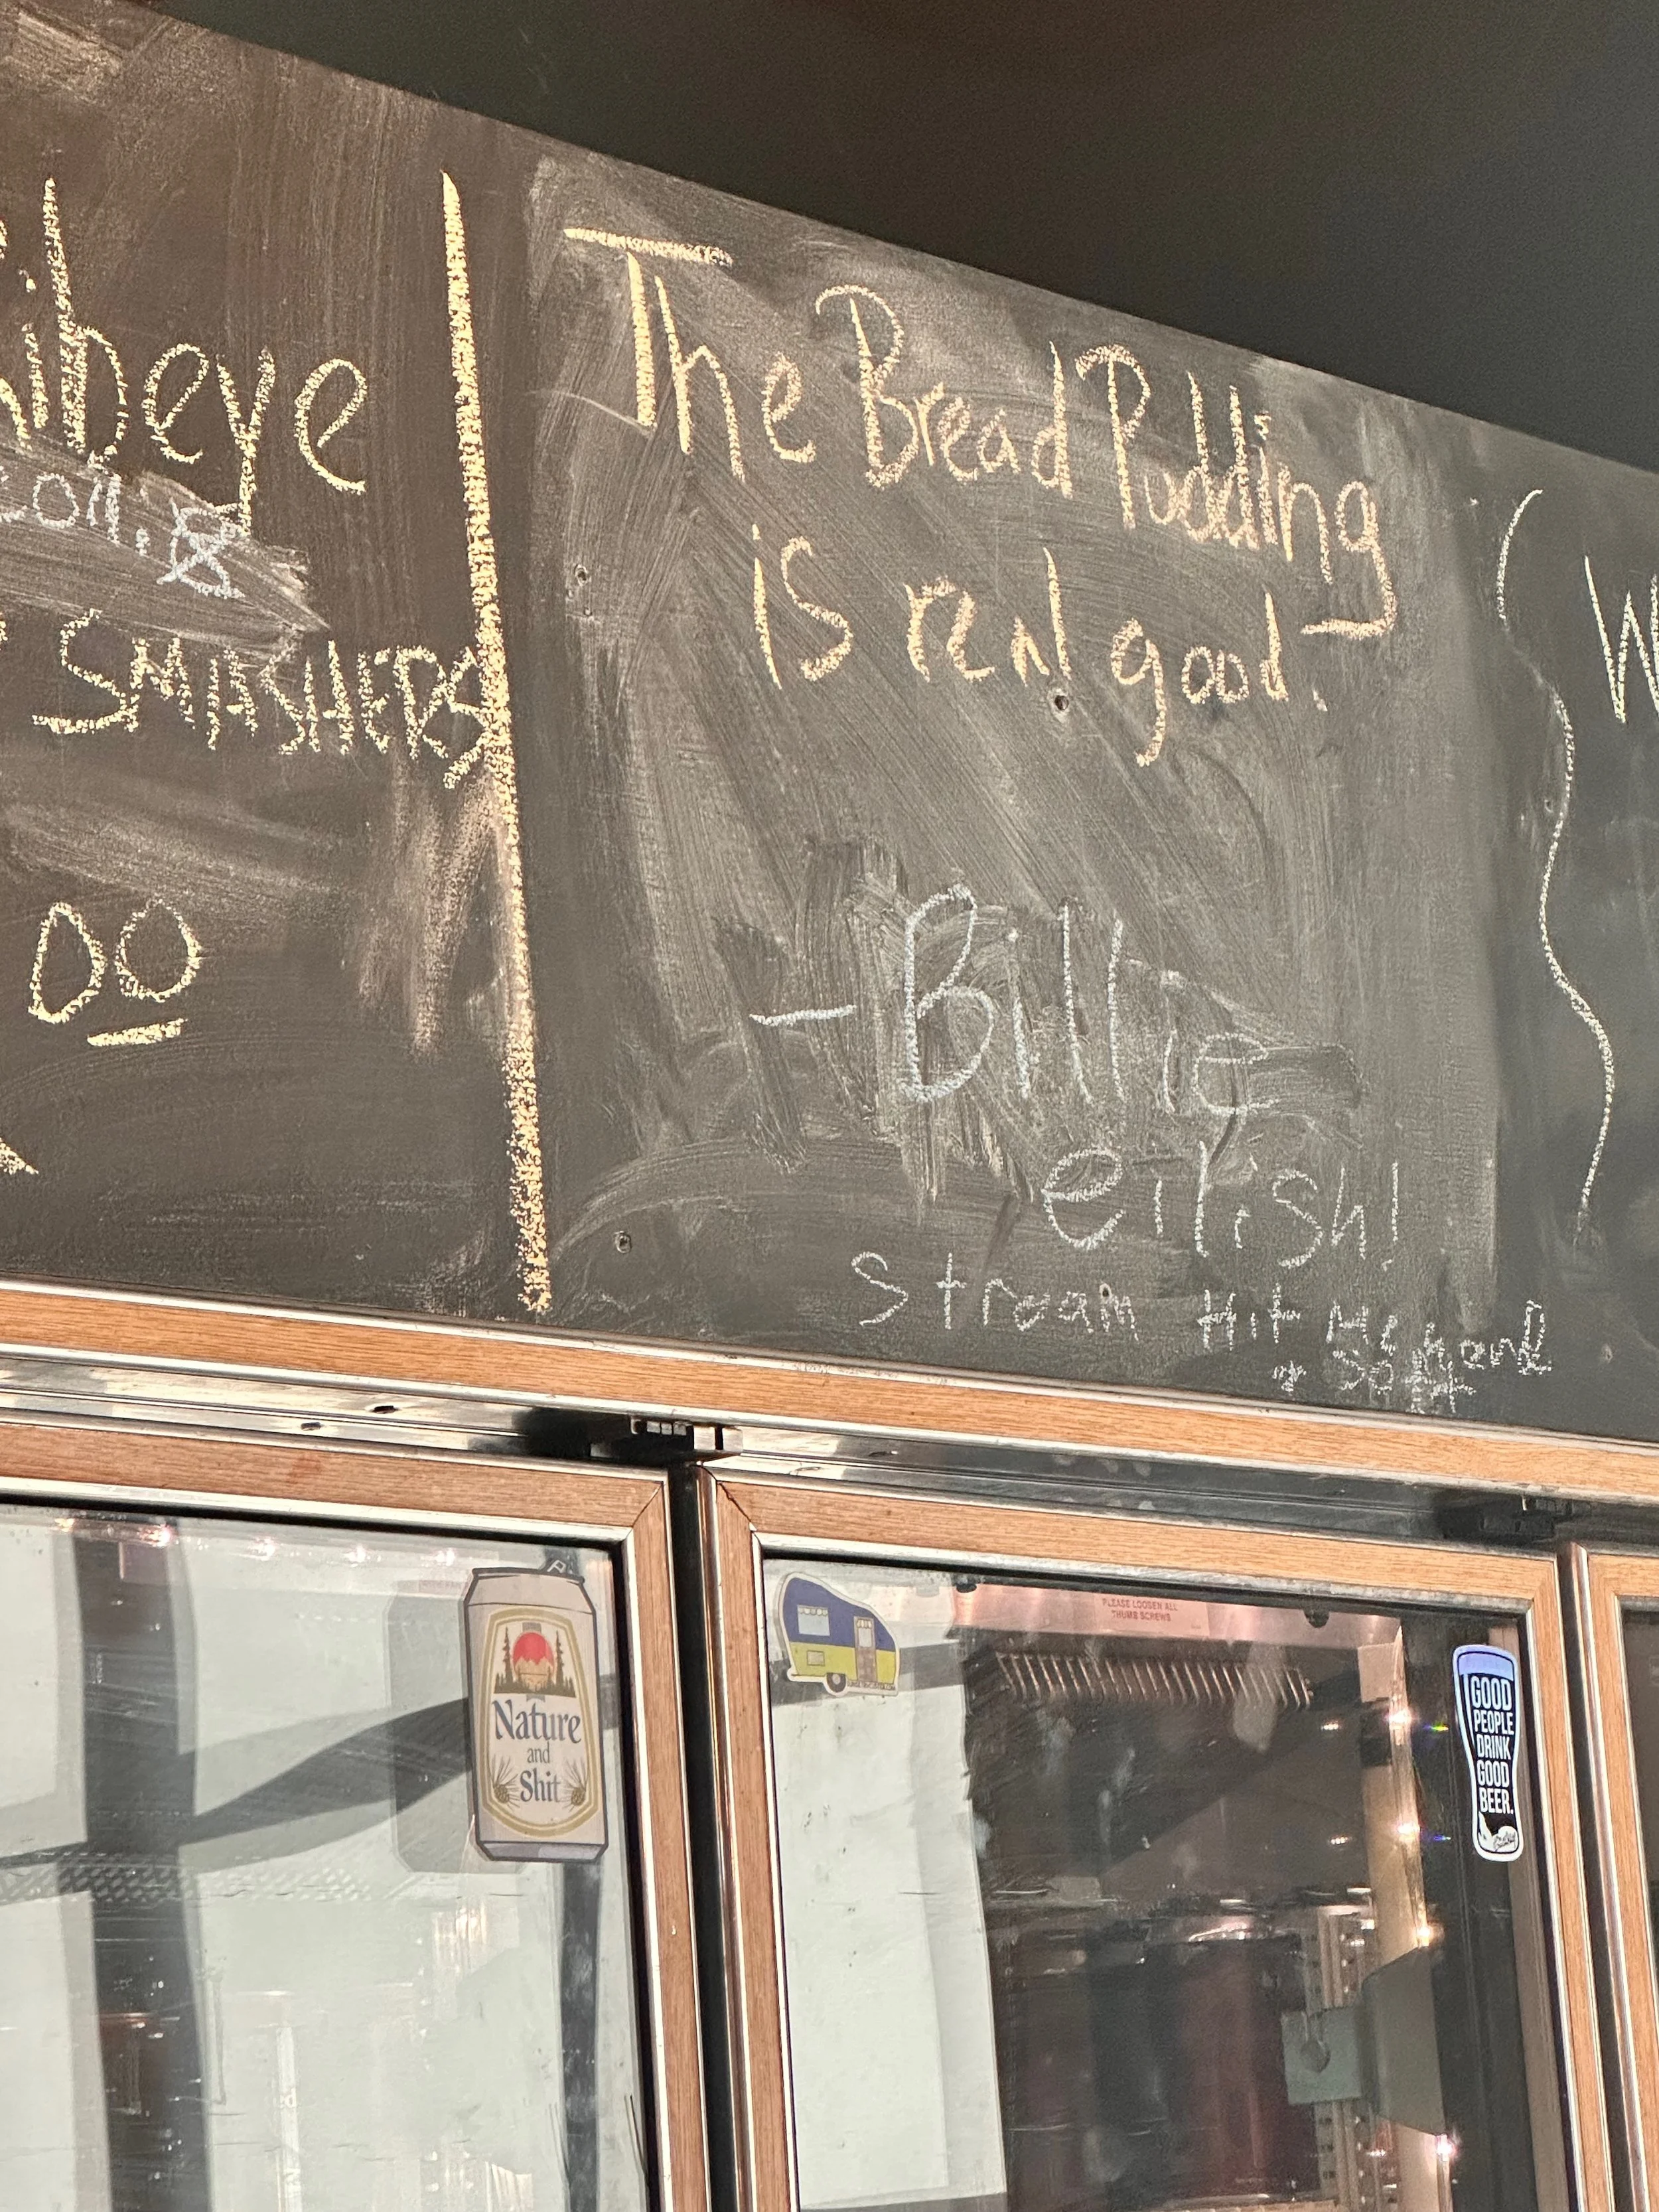 ibeye
SMASHERS
00
The Bread Pudding
is real good.
- Billie
eilish!
Stream Hit Me Hard
+ Soft
W
Nature
and
Shit
PLEASE LOOSEN ALL
THUMB SCREWS
GOOD
PEOPLE
DRINK
GOOD
BEER.